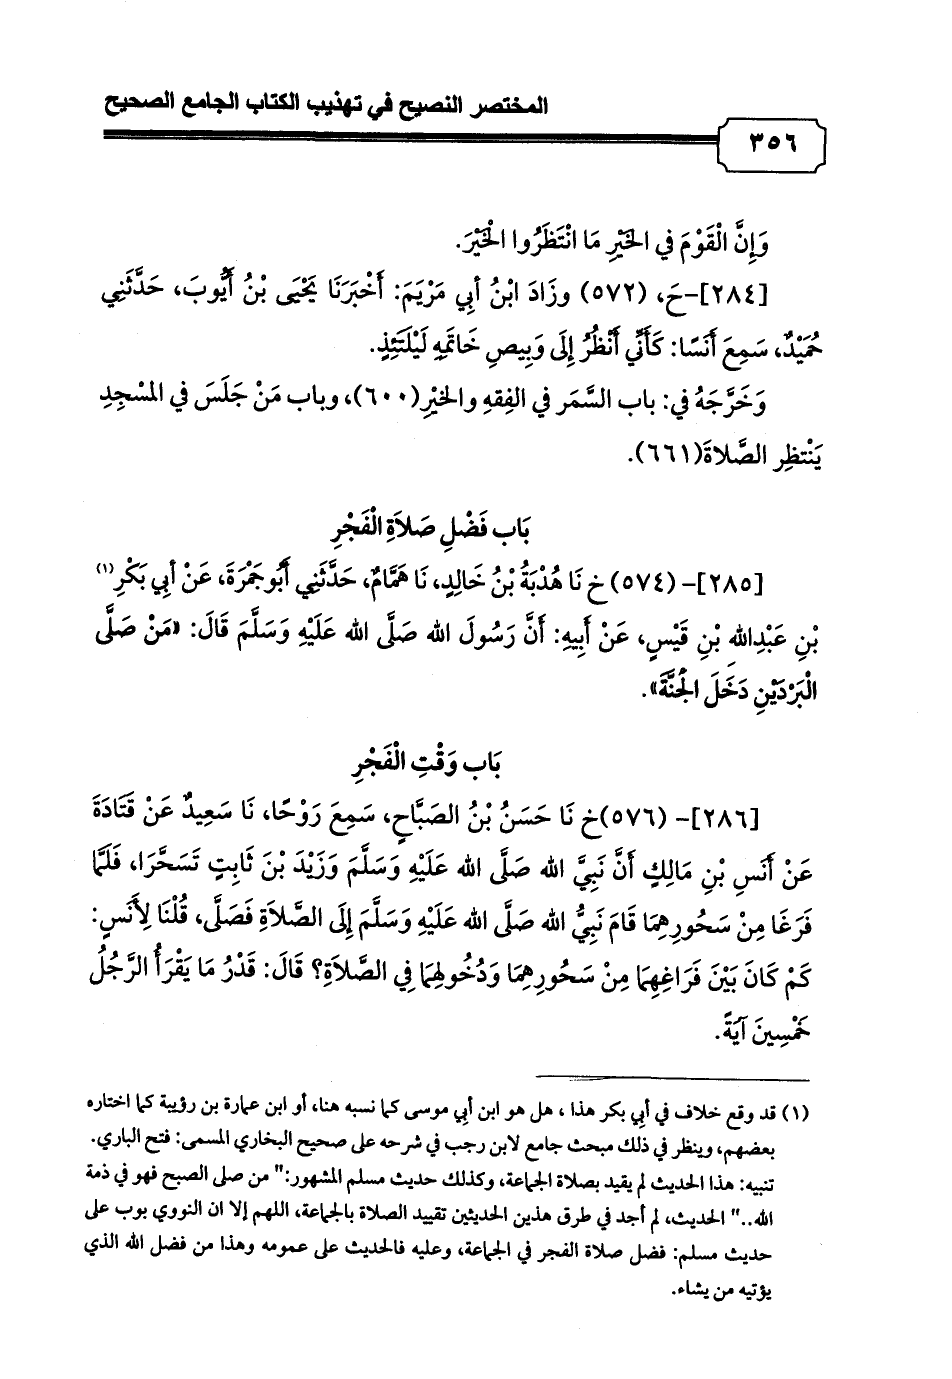 المختصر النصيح في تهذيب الكتاب الجامع الصحيح
٣٥٦
وَإِنَّ الْقَوْمَ فِي الخَيْرِ مَا انْتَظَرُوا الخَيْرَ.
[٢٨٤]-خ، (٥٧٢) وزَادَ ابْنُ أبِي مَرْيَمَ: أَخْبَرَنَا يَحْيَى بْنُ أَيُّوبَ، حَدَّثَنِي
حُمَيْدٌ، سَمِعَ أَنَسًا: كَأَنِّي أَنْظُرُ إِلَى وَبِيصِ خَاتَمِهِ لَيْلَتَئِذٍ.
وَخَرَّجَهُ في: باب السَّمَر في الفِقهِ والخيْرِ (٦٠٠)، وباب مَنْ جَلَسَ في المسْجِدِ
يَنْتظِر الصَّلاةَ(٦٦١).
بَاب فَضْلِ صَلاَةِ الْفَجْرِ
[٢٨٥]- (٥٧٤) خ نَا هُدْبَةُ بْنُ خَالِدٍ، نَا هَمَّامٌ، حَدَّثَنِي أَبُو جَمْرَةَ، عَنْ أبِي بَكْرِ(١)
بْنِ عَبْدِالله بْنِ قَيْسٍ، عَنْ أَبِيهِ: أَنَّ رَسُولَ الله صَلَّى الله عَلَيْهِ وَسَلَّمَ قَالَ: «مَنْ صَلَّى
الْبَرْدَيْنِ دَخَلَ الجَنَّةَ».
بَاب وَقْتِ الْفَجْرِ
[٢٨٦]- (٥٧٦)خ نَا حَسَنُ بْنُ الصَبَّاحِ، سَمِعَ رَوْحًا، نَا سَعِيدٌ عَنْ قَتَادَةَ
عَنْ أَنَسِ بْنِ مَالِكٍ أَنَّ نَبِيَّ الله صَلَّى الله عَلَيْهِ وَسَلَّمَ وَزَيْدَ بْنَ ثَابِتٍ تَسَحَّرَا، فَلَمَّا
فَرَغَا مِنْ سَحُورِهِمَا قَامَ نَبِيُّ الله صَلَّى الله عَلَيْهِ وَسَلَّمَ إِلَى الصَّلاَةِ فَصَلَّى، قُلْنَا لِأَنَسٍ:
كَمْ كَانَ بَيْنَ فَرَاغِهِمَا مِنْ سَحُورِهِمَا وَدُخُولِهِمَا فِي الصَّلاَةِ؟ قَالَ: قَدْرُ مَا يَقْرَأُ الرَّجُلُ
خَمْسِينَ آيَةً.
(١) قد وقع خلاف في أبي بكر هذا ، هل هو ابن أبي موسى كما نسبه هنا، أو ابن عمارة بن رؤيبة كما اختاره
بعضهم، وينظر في ذلك مبحث جامع لابن رجب في شرحه على صحيح البخاري المسمى: فتح الباري.
تنبيه: هذا الحديث لم يقيد بصلاة الجماعة، وكذلك حديث مسلم المشهور:" من صلى الصبح فهو في ذمة
الله.." الحديث، لم أجد في طرق هذين الحديثين تقييد الصلاة بالجماعة، اللهم إلا ان النووي بوب على
حديث مسلم: فضل صلاة الفجر في الجماعة، وعليه فالحديث على عمومه وهذا من فضل الله الذي
يؤتيه من يشاء.